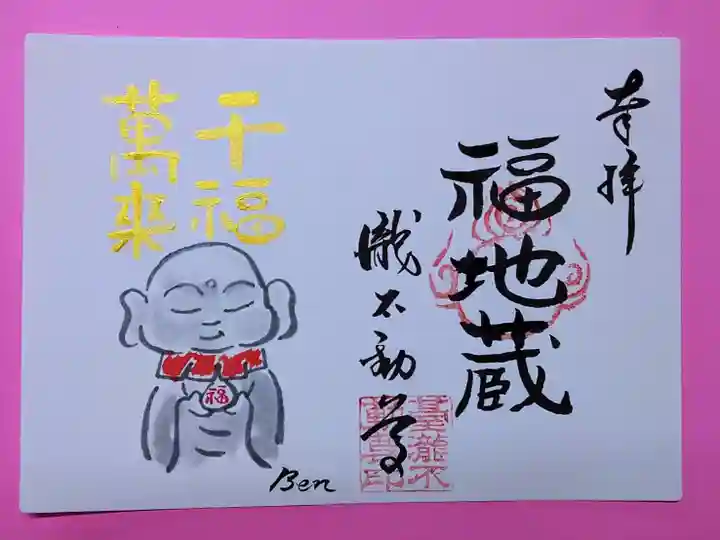 奉拝
福地蔵
瀧不動尊
千福
萬来
福
Ben